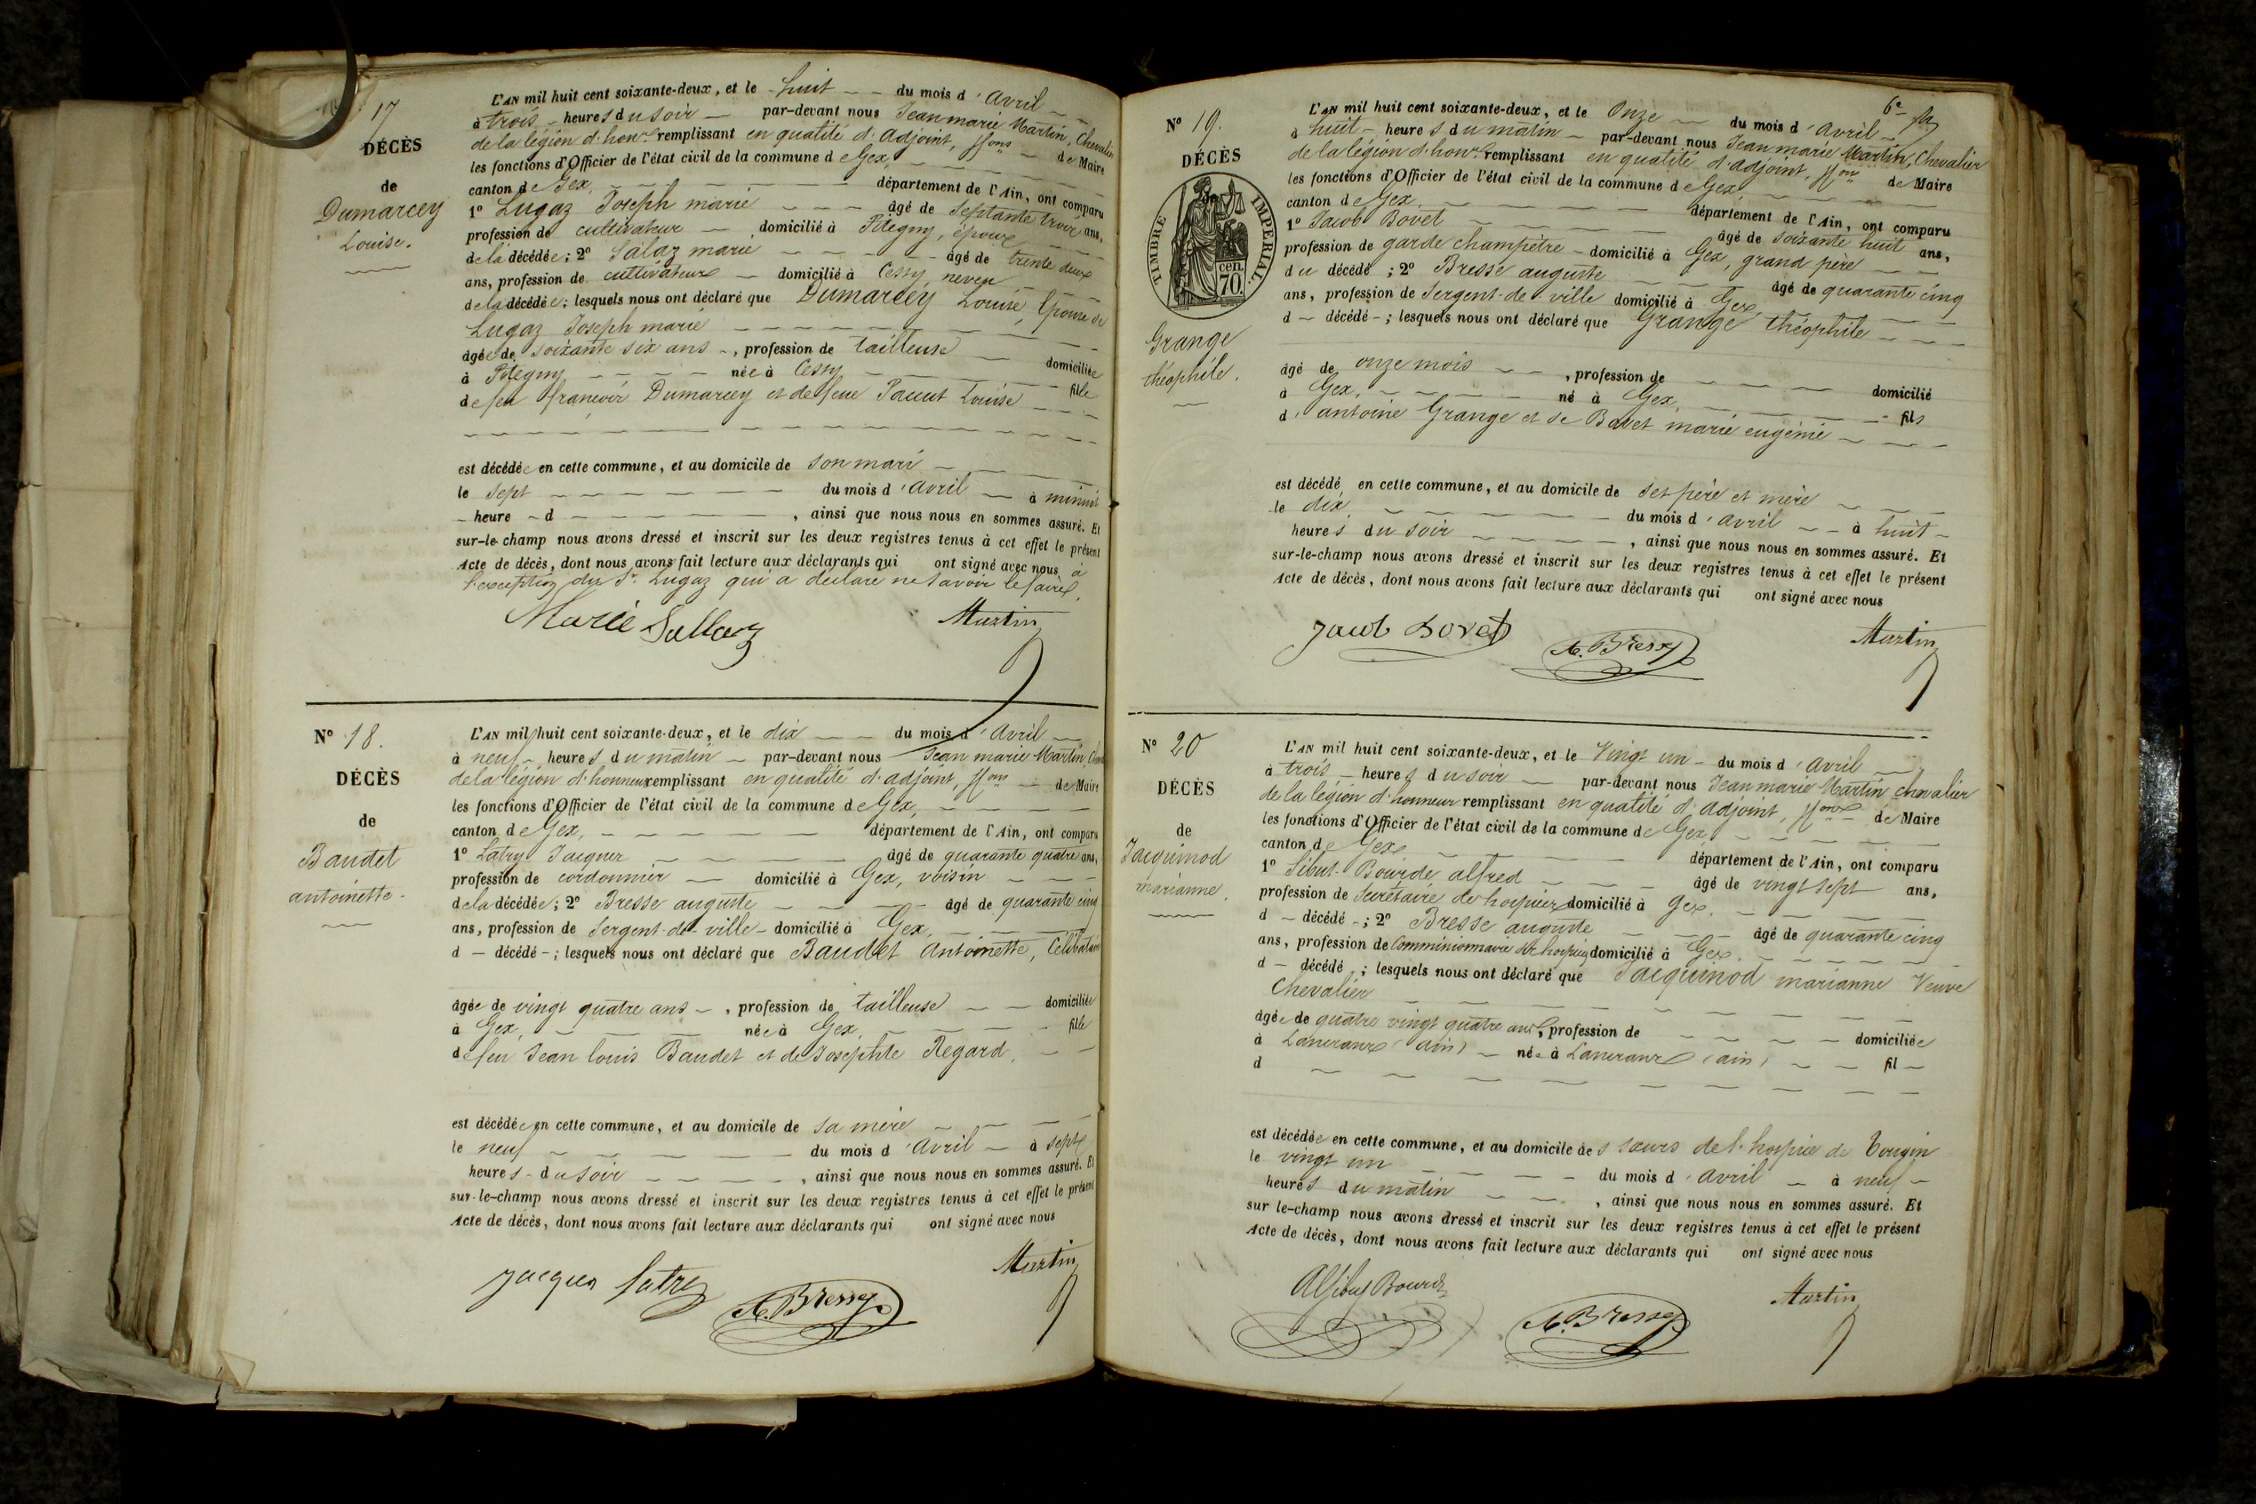 17
DÉCÈS
de
Dumarcey
Louise.
L'AN mil huit cent soixante-deux, et le huit du mois d'avril
à trois heures du soir par-devant nous Jean marie Martin, Chevalier
de la légion d'honr remplissant en qualité d'adjoint, ffons de Maire
les fonctions d'Officier de l'état civil de la commune de Gex,
canton de Gex, département de l'Ain, ont comparu
1º Lugaz Joseph marie âgé de septante trois ans,
profession de cultivateur domicilié à Pitegny, époux
de la décédée; 2º Salaz marie âgé de trente deux
ans, profession de cultivateur domicilié à Cessy, neveu
de la décédée; lesquels nous ont déclaré que Dumarcey Louise, épouse de
Lugaz Joseph marie
âgée de soixante six ans, profession de tailleuse domiciliée
à Pitegny née à Cessy fille
de feu françois Dumarcey et de feue Louise
est décédée en cette commune, et au domicile de son mari
le sept du mois d'avril à minuit
heure d , ainsi que nous nous en sommes assuré. Et
sur-le-champ nous avons dressé et inscrit sur les deux registres tenus à cet effet le présent
Acte de décès, dont nous avons fait lecture aux déclarants qui ont signé avec nous à
l'exception du Sr Lugaz qui a déclaré ne savoir le faire.
Marie Sallaz Martin
Nº 18.
DÉCÈS
de
Baudet
antoinette.
L'AN mil huit cent soixante-deux, et le dix du mois d'avril
à neuf heures du matin par-devant nous Jean marie Martin
de la légion d'honneur remplissant en qualité d'adjoint, ffons de Maire
les fonctions d'Officier de l'état civil de la commune de Gex,
canton de Gex, département de l'Ain, ont comparu
1º Latry Jacques âgé de quarante quatre ans,
profession de cordonnier domicilié à Gex, voisin
de la décédée; 2º Bresse auguste âgé de quarante cinq
ans, profession de Sergent-de-ville domicilié à Gex,
d décédé; lesquels nous ont déclaré que Baudet Antoinette, Célibataire
âgée de vingt quatre ans, profession de tailleuse domiciliée
à Gex, née à Gex, fille
de feu Jean louis Baudet et de Josephte Regard,
est décédée en cette commune, et au domicile de sa mère
le neuf du mois d'avril à sept
heures du soir , ainsi que nous nous en sommes assuré. Et
sur-le-champ nous avons dressé et inscrit sur les deux registres tenus à cet effet le présent
Acte de décès, dont nous avons fait lecture aux déclarants qui ont signé avec nous
Jacques Latry A. Bresse Martin
6e
Nº 19.
DÉCÈS
TIMBRE IMPÉRIAL.
cen.
70.
Grange
théophile.
L'AN mil huit cent soixante-deux, et le Onze du mois d'avril
à huit heures du matin par-devant nous Jean marie Martin, Chevalier
de la légion d'honr remplissant en qualité d'adjoint, ffons de Maire
les fonctions d'Officier de l'état civil de la commune de Gex
canton de Gex, département de l'Ain, ont comparu
1º Jacob Bovet âgé de soixante huit ans,
profession de garde champêtre domicilié à Gex, grand père
du décédé; 2º Bresse auguste âgé de quarante cinq
ans, profession de Sergent-de-ville domicilié à Gex,
d décédé; lesquels nous ont déclaré que Grange théophile
âgé de onze mois, profession de domicilié
à Gex, né à Gex, fils
d'antoine Grange et de Bovet marie eugénie
est décédé en cette commune, et au domicile de ses père et mère
le dix du mois d'avril à huit
heures du soir , ainsi que nous nous en sommes assuré. Et
sur-le-champ nous avons dressé et inscrit sur les deux registres tenus à cet effet le présent
Acte de décès, dont nous avons fait lecture aux déclarants qui ont signé avec nous
Jacob Bovet A. Bresse Martin
Nº 20
DÉCÈS
de
Jacquinod
marianne.
L'AN mil huit cent soixante-deux, et le Vingt un du mois d'avril
à trois heures du soir par-devant nous Jean marie Martin chevalier
de la légion d'honneur remplissant en qualité d'adjoint, ffons de Maire
les fonctions d'Officier de l'état civil de la commune de Gex,
canton de Gex département de l'Ain, ont comparu
1º Sibut-Bourde alfred âgé de vingt sept ans,
profession de Secrétaire de hospices domicilié à Gex,
d décédé; 2º Bresse auguste âgé de quarante cinq
ans, profession de Commissionnaire de hospices domicilié à Gex,
d décédé; lesquels nous ont déclaré que Jacquinod marianne Veuve
Chevalier
âgée de quatre vingt quatre ans, profession de domiciliée
à Lancrans (ain) née à Lancrans (ain) fil
d
est décédée en cette commune, et au domicile des sœurs de l'hospice de Tougin
le vingt un du mois d'avril à neuf
heures du matin , ainsi que nous nous en sommes assuré. Et
sur-le-champ nous avons dressé et inscrit sur les deux registres tenus à cet effet le présent
Acte de décès, dont nous avons fait lecture aux déclarants qui ont signé avec nous
A Sibut Bourde A. Bresse Martin